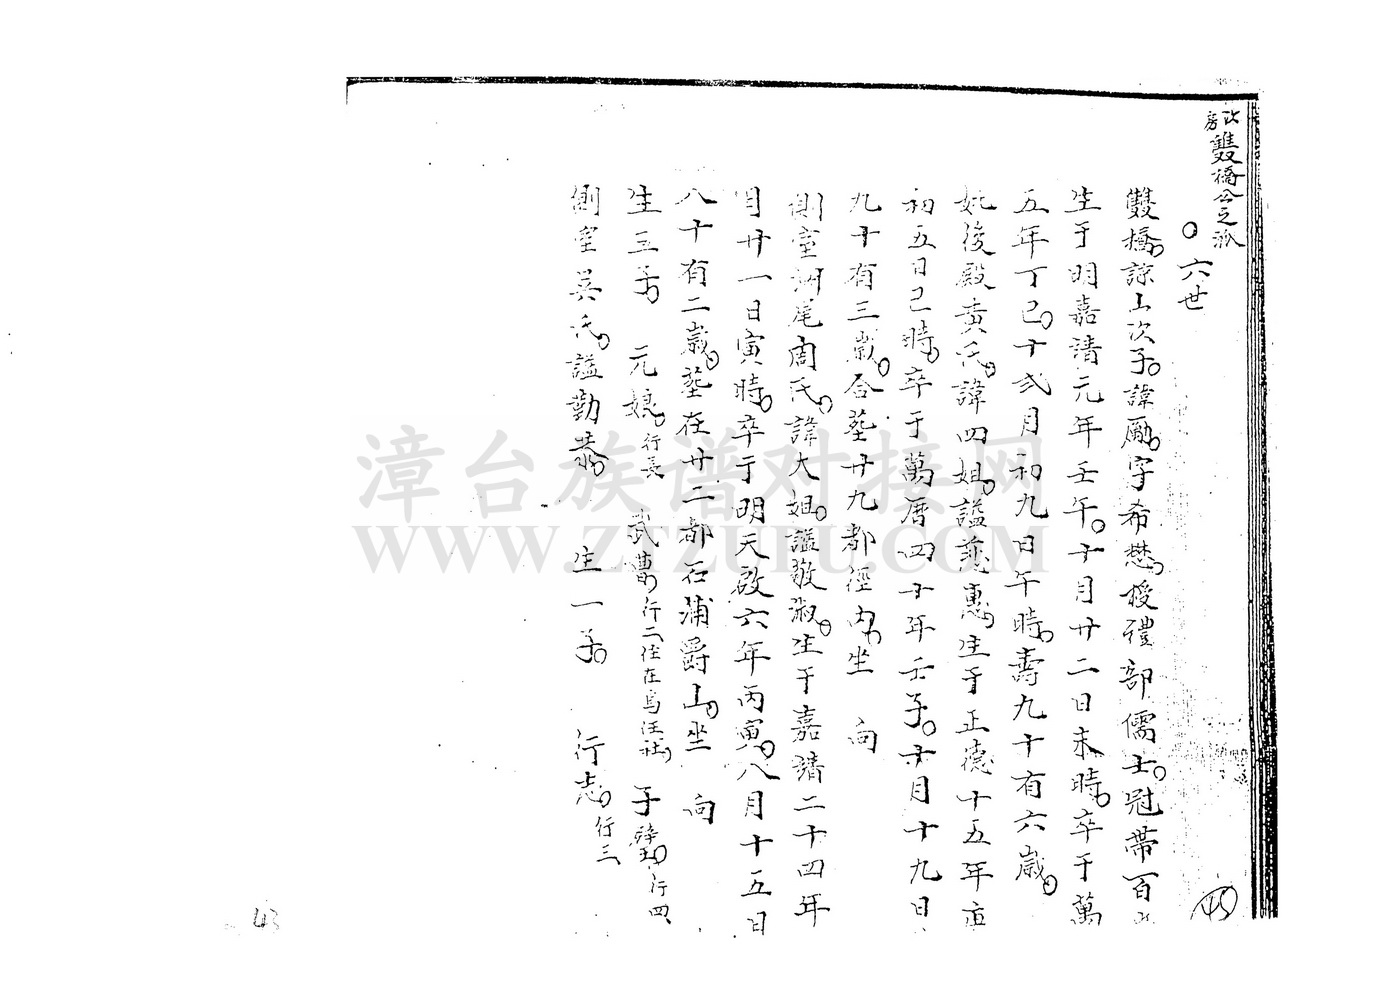 北房雙橋公之派
六世
雙橋諒山次子諱勵字希懋授禮部儒士冠帶百
生于明嘉清元年壬午十月廿二日未時卒于萬
五年丁巳十弍月初九日午時壽九十有六歲
妣後殿黃氏諱四姐謚慈惠生于正德十五年
初五日己時卒于萬曆四十年壬子十月十九日
九十有三歲合塟廿九都徑內坐 向
側室洲尾周氏諱大姐謚敬淑生于嘉靖二十四年
月廿一日寅時卒于明天啟六年丙寅八月十五日
八十有二歲塟在廿二都石浦爵山坐 向
生三子 元娘行長 武曹行二住在烏汪社 于 行四
側室吳氏謚勤恭 生一子 行志行三
43
漳台族谱对接网
WWW.ZTZUPU.COM